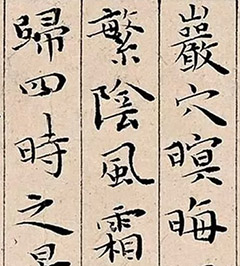 巖穴暝晦
繁陰風霜
歸四時之